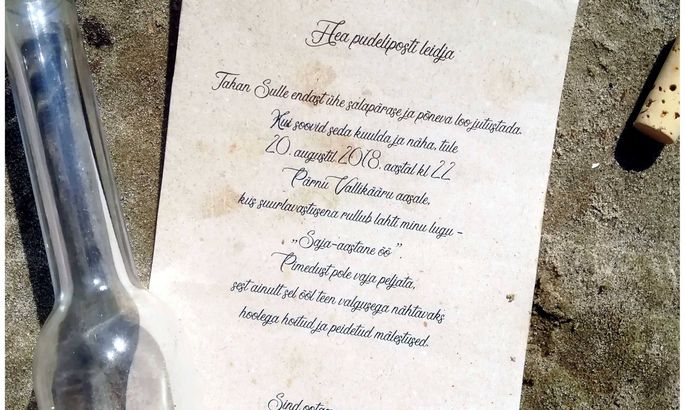 Hea pudeliposti leidja
Tahan Sulle endast ühe salapärase ja põneva loo jutustada.
Kui soovid seda kuulda ja näha, tule
20. augustil 2018. aastal kl 22
Pärnu Vallikääru aasale,
kus suurlavastusena rullub lahti minu lugu -
„Saja-aastane öö”.
Pimedust pole vaja peljata,
sest ainult sel ööl teen valgusega nähtavaks
hoolega hoitud ja peidetud mälestused.
Sind